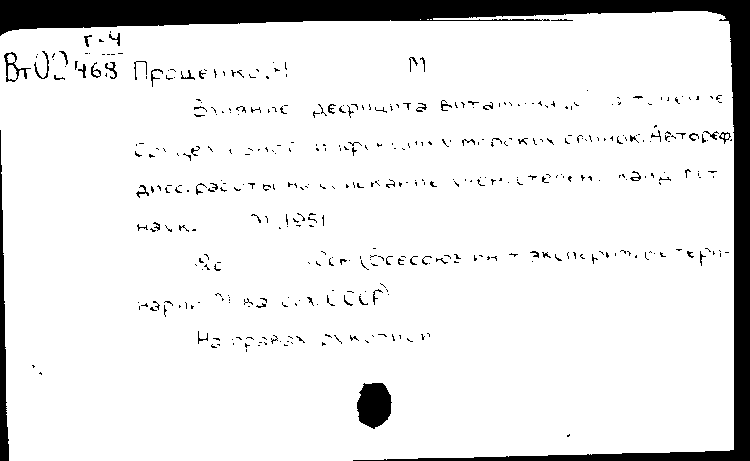 Г-4
Вт02 468 Проценко, Н М
Влияние дефицита витамина „С“ течение
и морских свинок. Автореф.
дисс. работы на соискание учен. степени канд. вет.
наук. М, 1951
20 см (Всесоюз. ин-т эксперим. ветери-
нарии М-ва с.х. СССР)
На правах рукописи